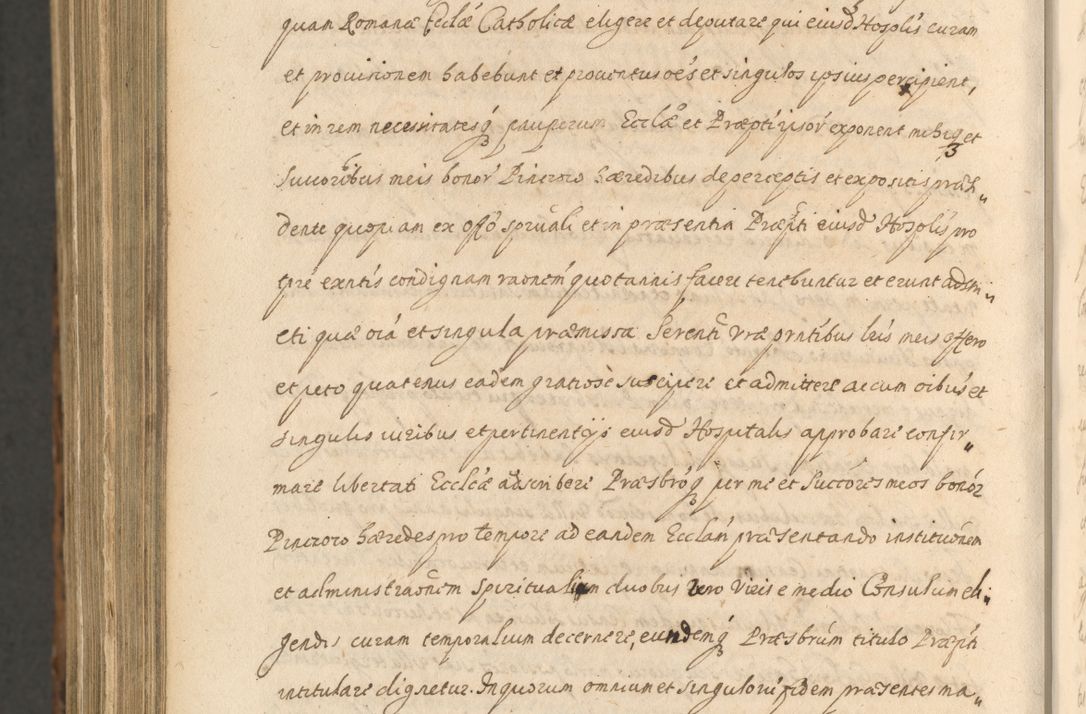 quam Romanæ Ecclæ Catholicæ eligere et deputare qui eiusd Hosplis curam
et prouisionem habebunt et prouentus oēs et singulos ipsius percipient,
et in rem necessitatesq pauperum Ecclæ et Præpti ipsor exponent mihiq et
Succoribus meis bonor Pinczoro hæredibus de perceptis et expositis præsi„
dente quopiam ex offo sprūali et in præsentia Præpti eiusd Hosplis pro
tpre exntis condignam raonem quotannis facere tenebuntur et erunt adstri„
cti quæ oiā et singula præmissa Serenti Vræ prntibus lris meis offero
et peto quatenus eadem gratiosè suscipere et admittere ac cum oibus et
singulis iuribus et pertinentijs eiusd Hospitalis approbare confir„
mare libertati Ecclcæ adscribere Præsbroq per me et Succores meos bonór
Pinczoro hæredes pro tempore ad eandem Ecclań præsentando institutionem
et administraonem Spiritualium duobus vero Viris e medio Consulum eli„
gendis curam temporalium decernere, eundemq Præsbrum titulo Præpti
intitulare dignetur. In quorum omnium et singuloru fidem præsentes ma„